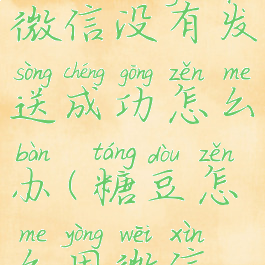 微信没有发
sòng chéng gōng zěn me
送成功怎么
bàn táng dòu zěn
办(糖豆怎
me yòng wēi xìn
么用微信